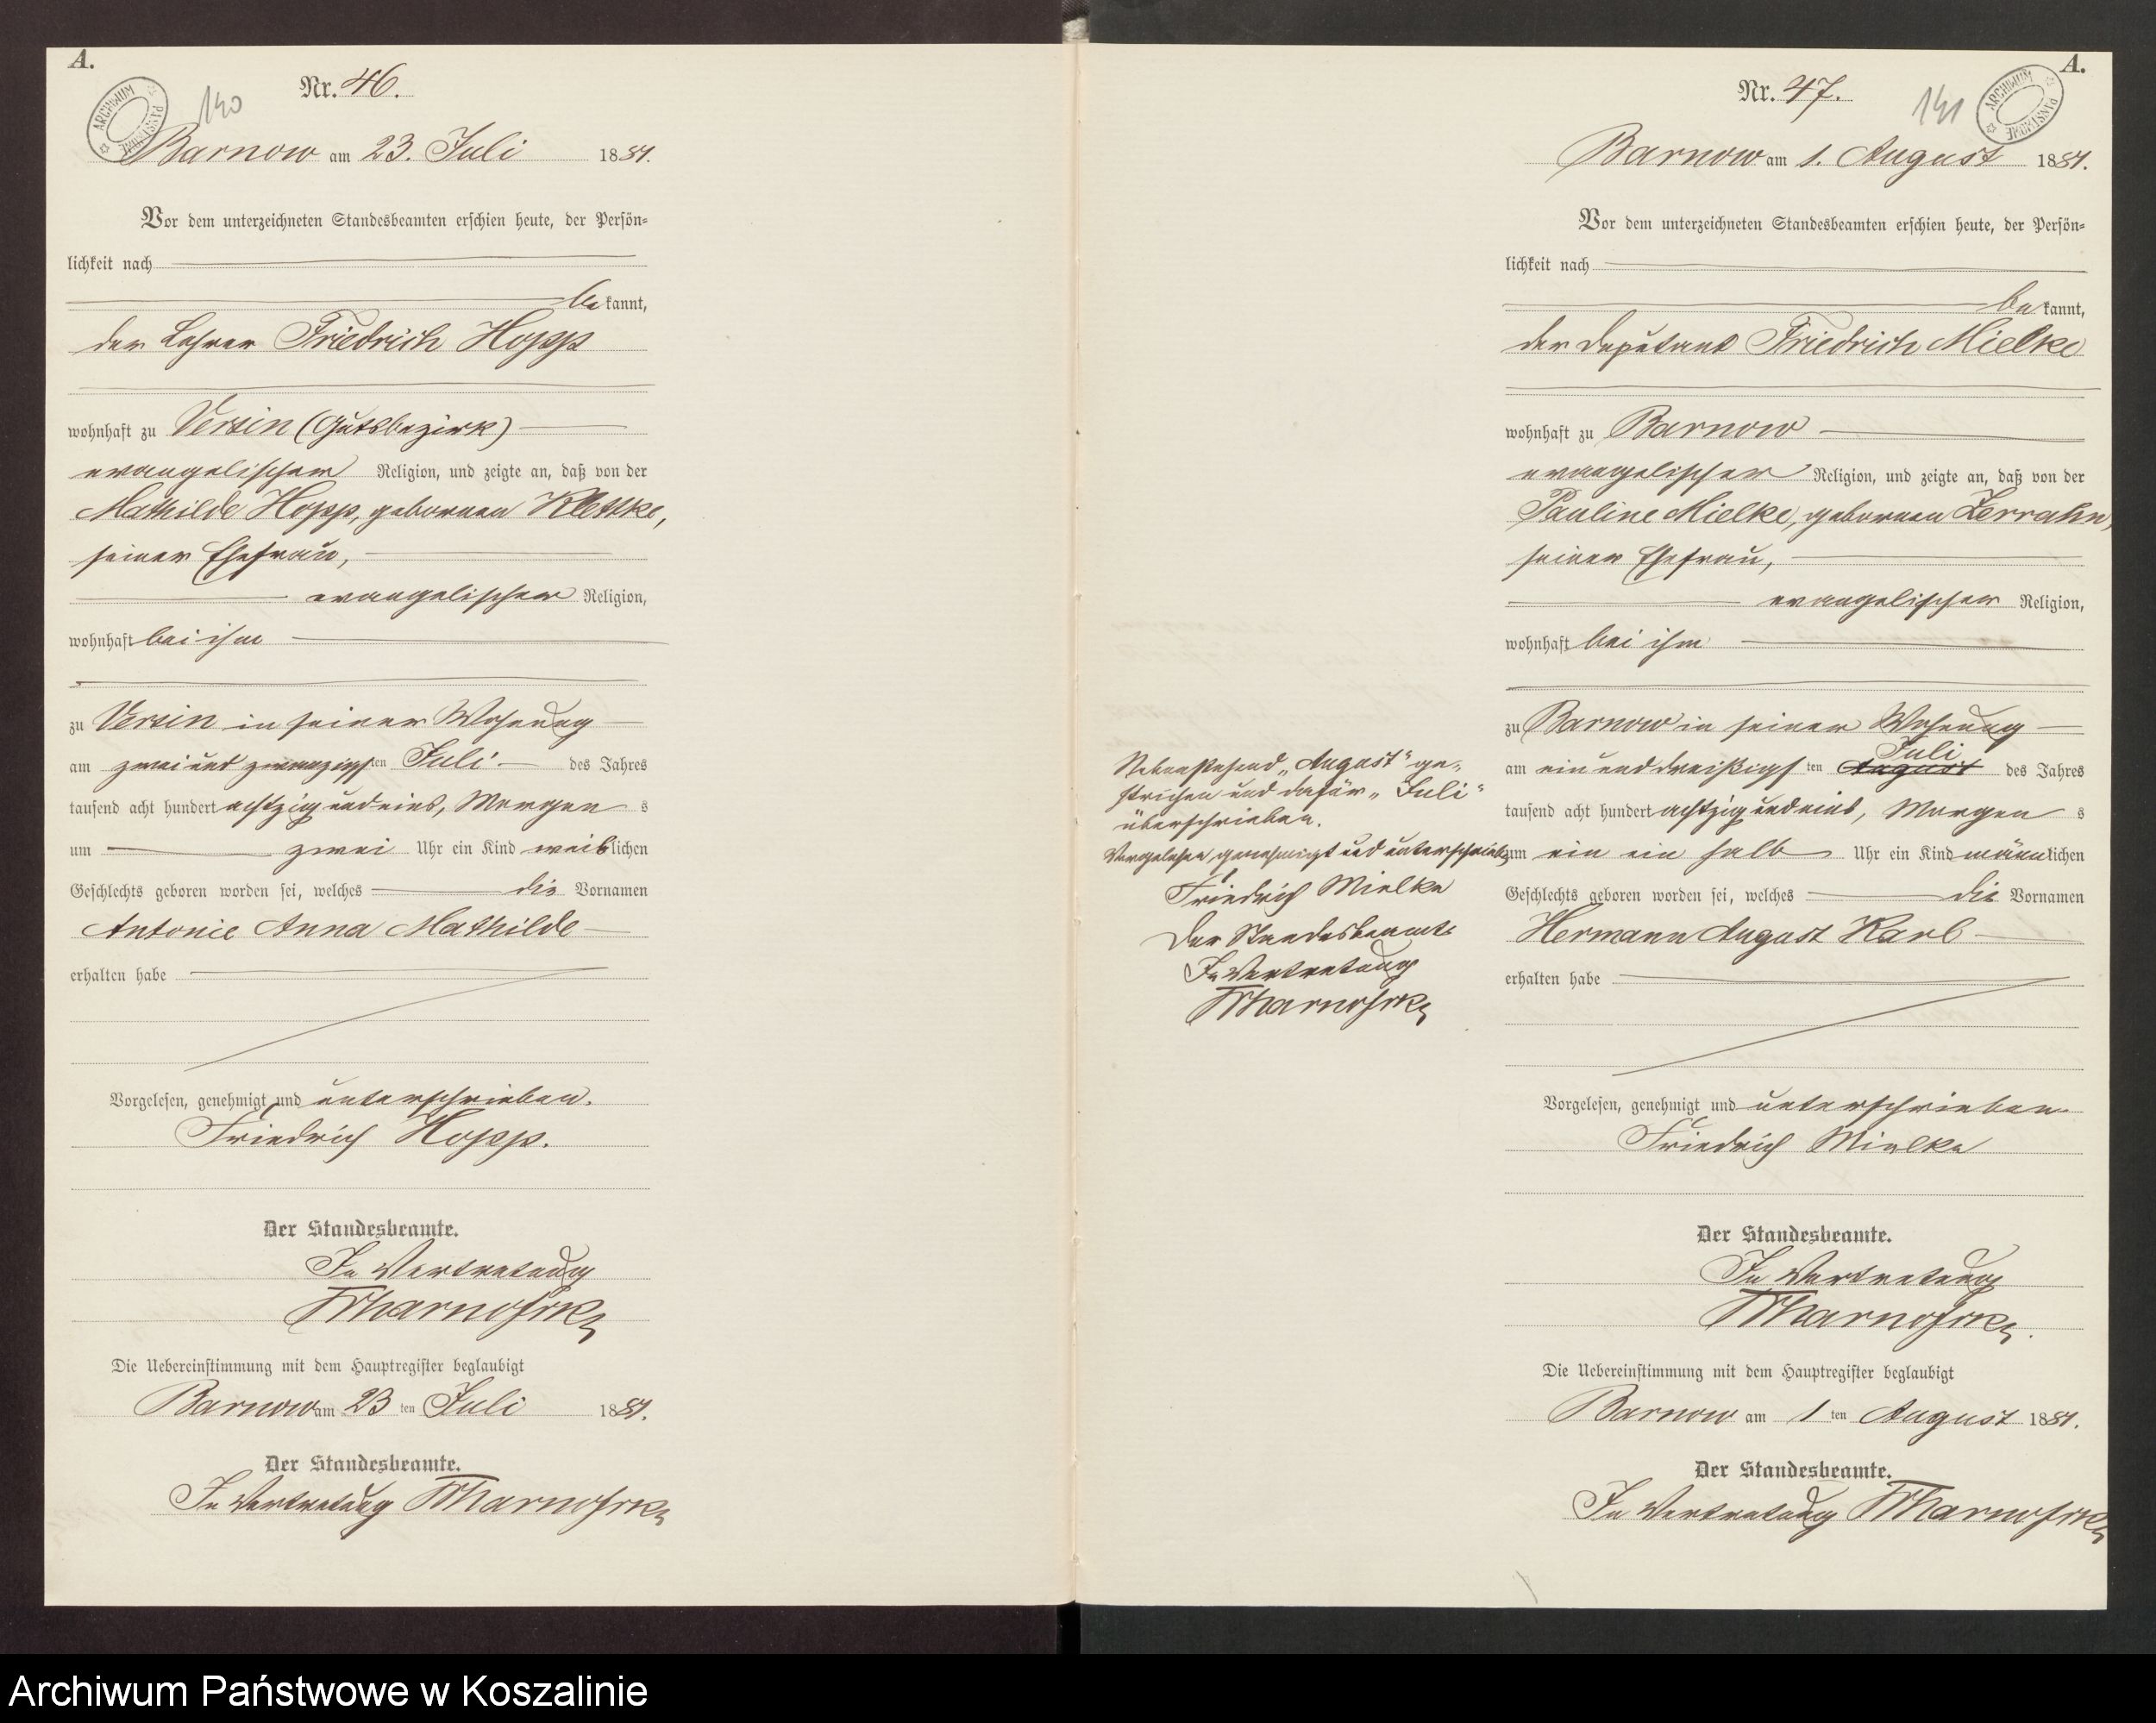 A.
Nr. 46.
140
ARCHIWUM PAŃSTWOWE
Barnow am 23. Juli 1881.
Vor dem unterzeichneten Standesbeamten erschien heute, der Persön=
lichkeit nach
bekannt,
der Lehrer Friedrich Hopp
wohnhaft zu Versin (Gutsbezirk)
evangelischer Religion, und zeigte an, daß von der
Mathilde Hopp, geborenen Klettke,
seiner Ehefrau,
evangelischer Religion,
wohnhaft bei ihm
zu Versin in seiner Wohnung
am zwei und zwanzigsten Juli des Jahres
tausend acht hundert achtzig und eins, Morgens
um zwei Uhr ein Kind weiblichen
Geschlechts geboren worden sei, welches die Vornamen
Antonie Anna Mathilde
erhalten habe
Vorgelesen, genehmigt und unterschrieben.
Friedrich Hopp.
Der Standesbeamte.
In Vertretung
Die Uebereinstimmung mit dem Hauptregister beglaubigt
Barnow am 23ten Juli 1881.
Der Standesbeamte.
In Vertretung
A.
Nr. 47.
141
ARCHIWUM PAŃSTWOWE
Barnow am 1. August 1881.
Vor dem unterzeichneten Standesbeamten erschien heute, der Persön=
lichkeit nach
bekannt,
der Deputant Friedrich Mielke
wohnhaft zu Barnow
evangelischer Religion, und zeigte an, daß von der
Pauline Mielke, geborenen Zerrahn,
seiner Ehefrau,
evangelischer Religion,
wohnhaft bei ihm
zu Barnow in seiner Wohnung
Juli
am ein und dreißigsten August des Jahres
tausend acht hundert achtzig und eins, Morgens
um ein ein halb Uhr ein Kind männlichen
Geschlechts geboren worden sei, welches die Vornamen
Hermann August Karl
erhalten habe
Vorgelesen, genehmigt und unterschrieben
Friedrich Mielke
Der Standesbeamte.
In Vertretung
Die Uebereinstimmung mit dem Hauptregister beglaubigt
Barnow am 1ten August 1881.
Der Standesbeamte.
In Vertretung
Nebenstehend „August" ge-
strichen und dafür „Juli"
überschrieben.
Vorgelesen genehmigt und unterschrieben
Friedrich Mielke
Der Standesbeamte
In Vertretung
Archiwum Państwowe w Koszalinie